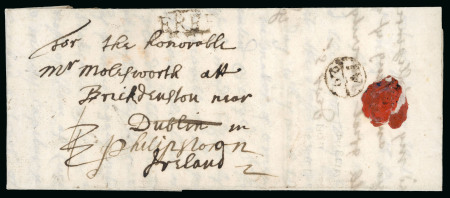 FREE
For the honorable
Mr Molesworth att
Brickdenston near
Dublin in
Philipstown
Ireland